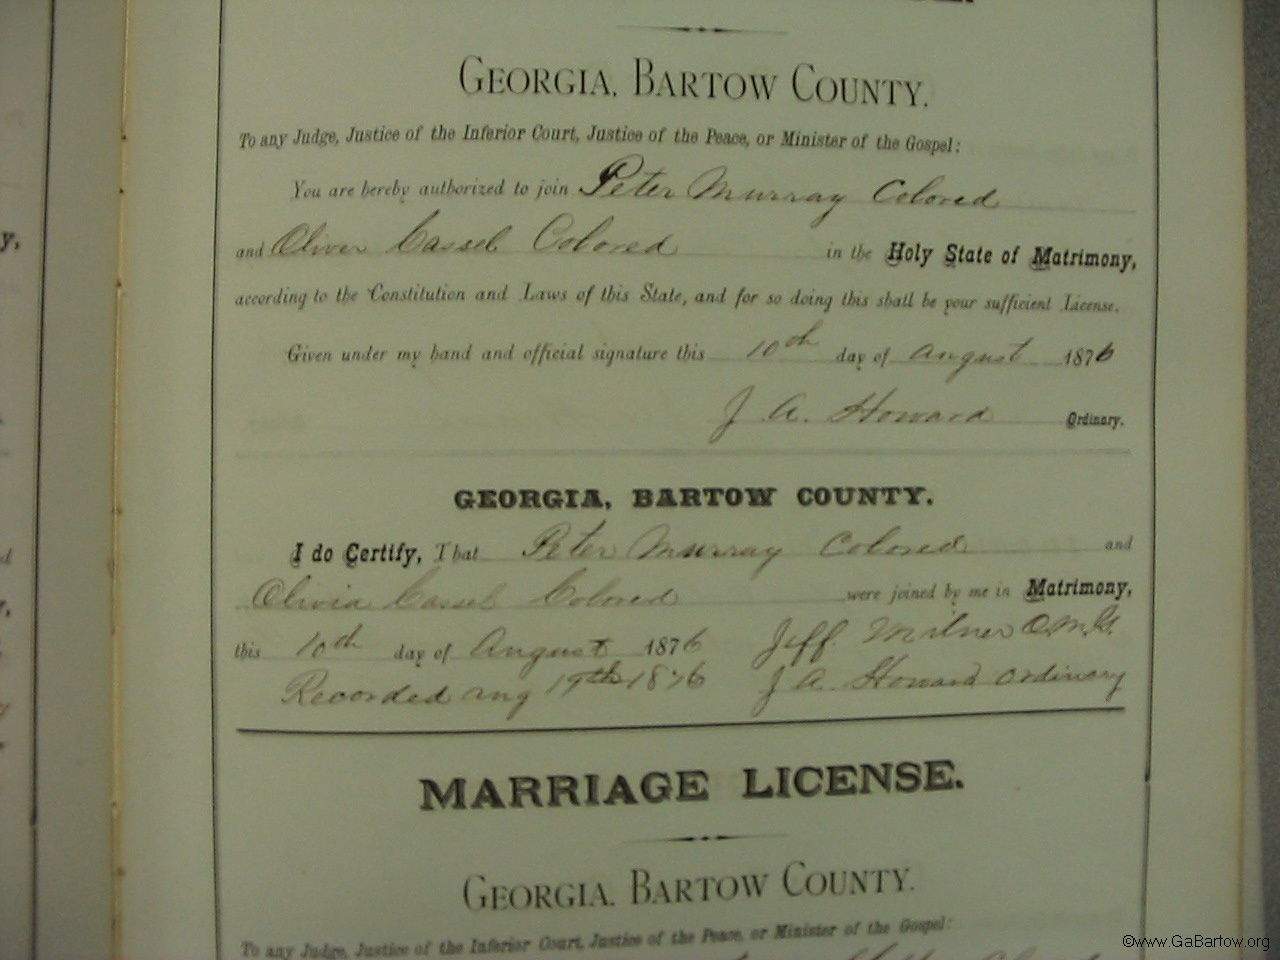 GEORGIA, BARTOW COUNTY.
To any Judge, Justice of the Inferior Court, Justice of the Peace, or Minister of the Gospel:
You are hereby authorized to join Peter Murray Colored
and Oliver Cassel Colored in the Holy State of Matrimony,
according to the Constitution and Laws of this State, and for so doing this shall be your sufficient License.
Given under my hand and official signature this 10th day of August 1876
J. A. Howard Ordinary.
GEORGIA, BARTOW COUNTY.
I do Certify, That Peter Murray Colored and
Olivia Cassel Colored were joined by me in Matrimony,
this 10th day of August 1876 Jeff Milner O.M.G.
Recorded Aug 19th 1876 J A. Howard Ordinary
MARRIAGE LICENSE.
GEORGIA, BARTOW COUNTY.
To any Judge, Justice of the Inferior Court, Justice of the Peace, or Minister of the Gospel:
©www.GaBartow.org